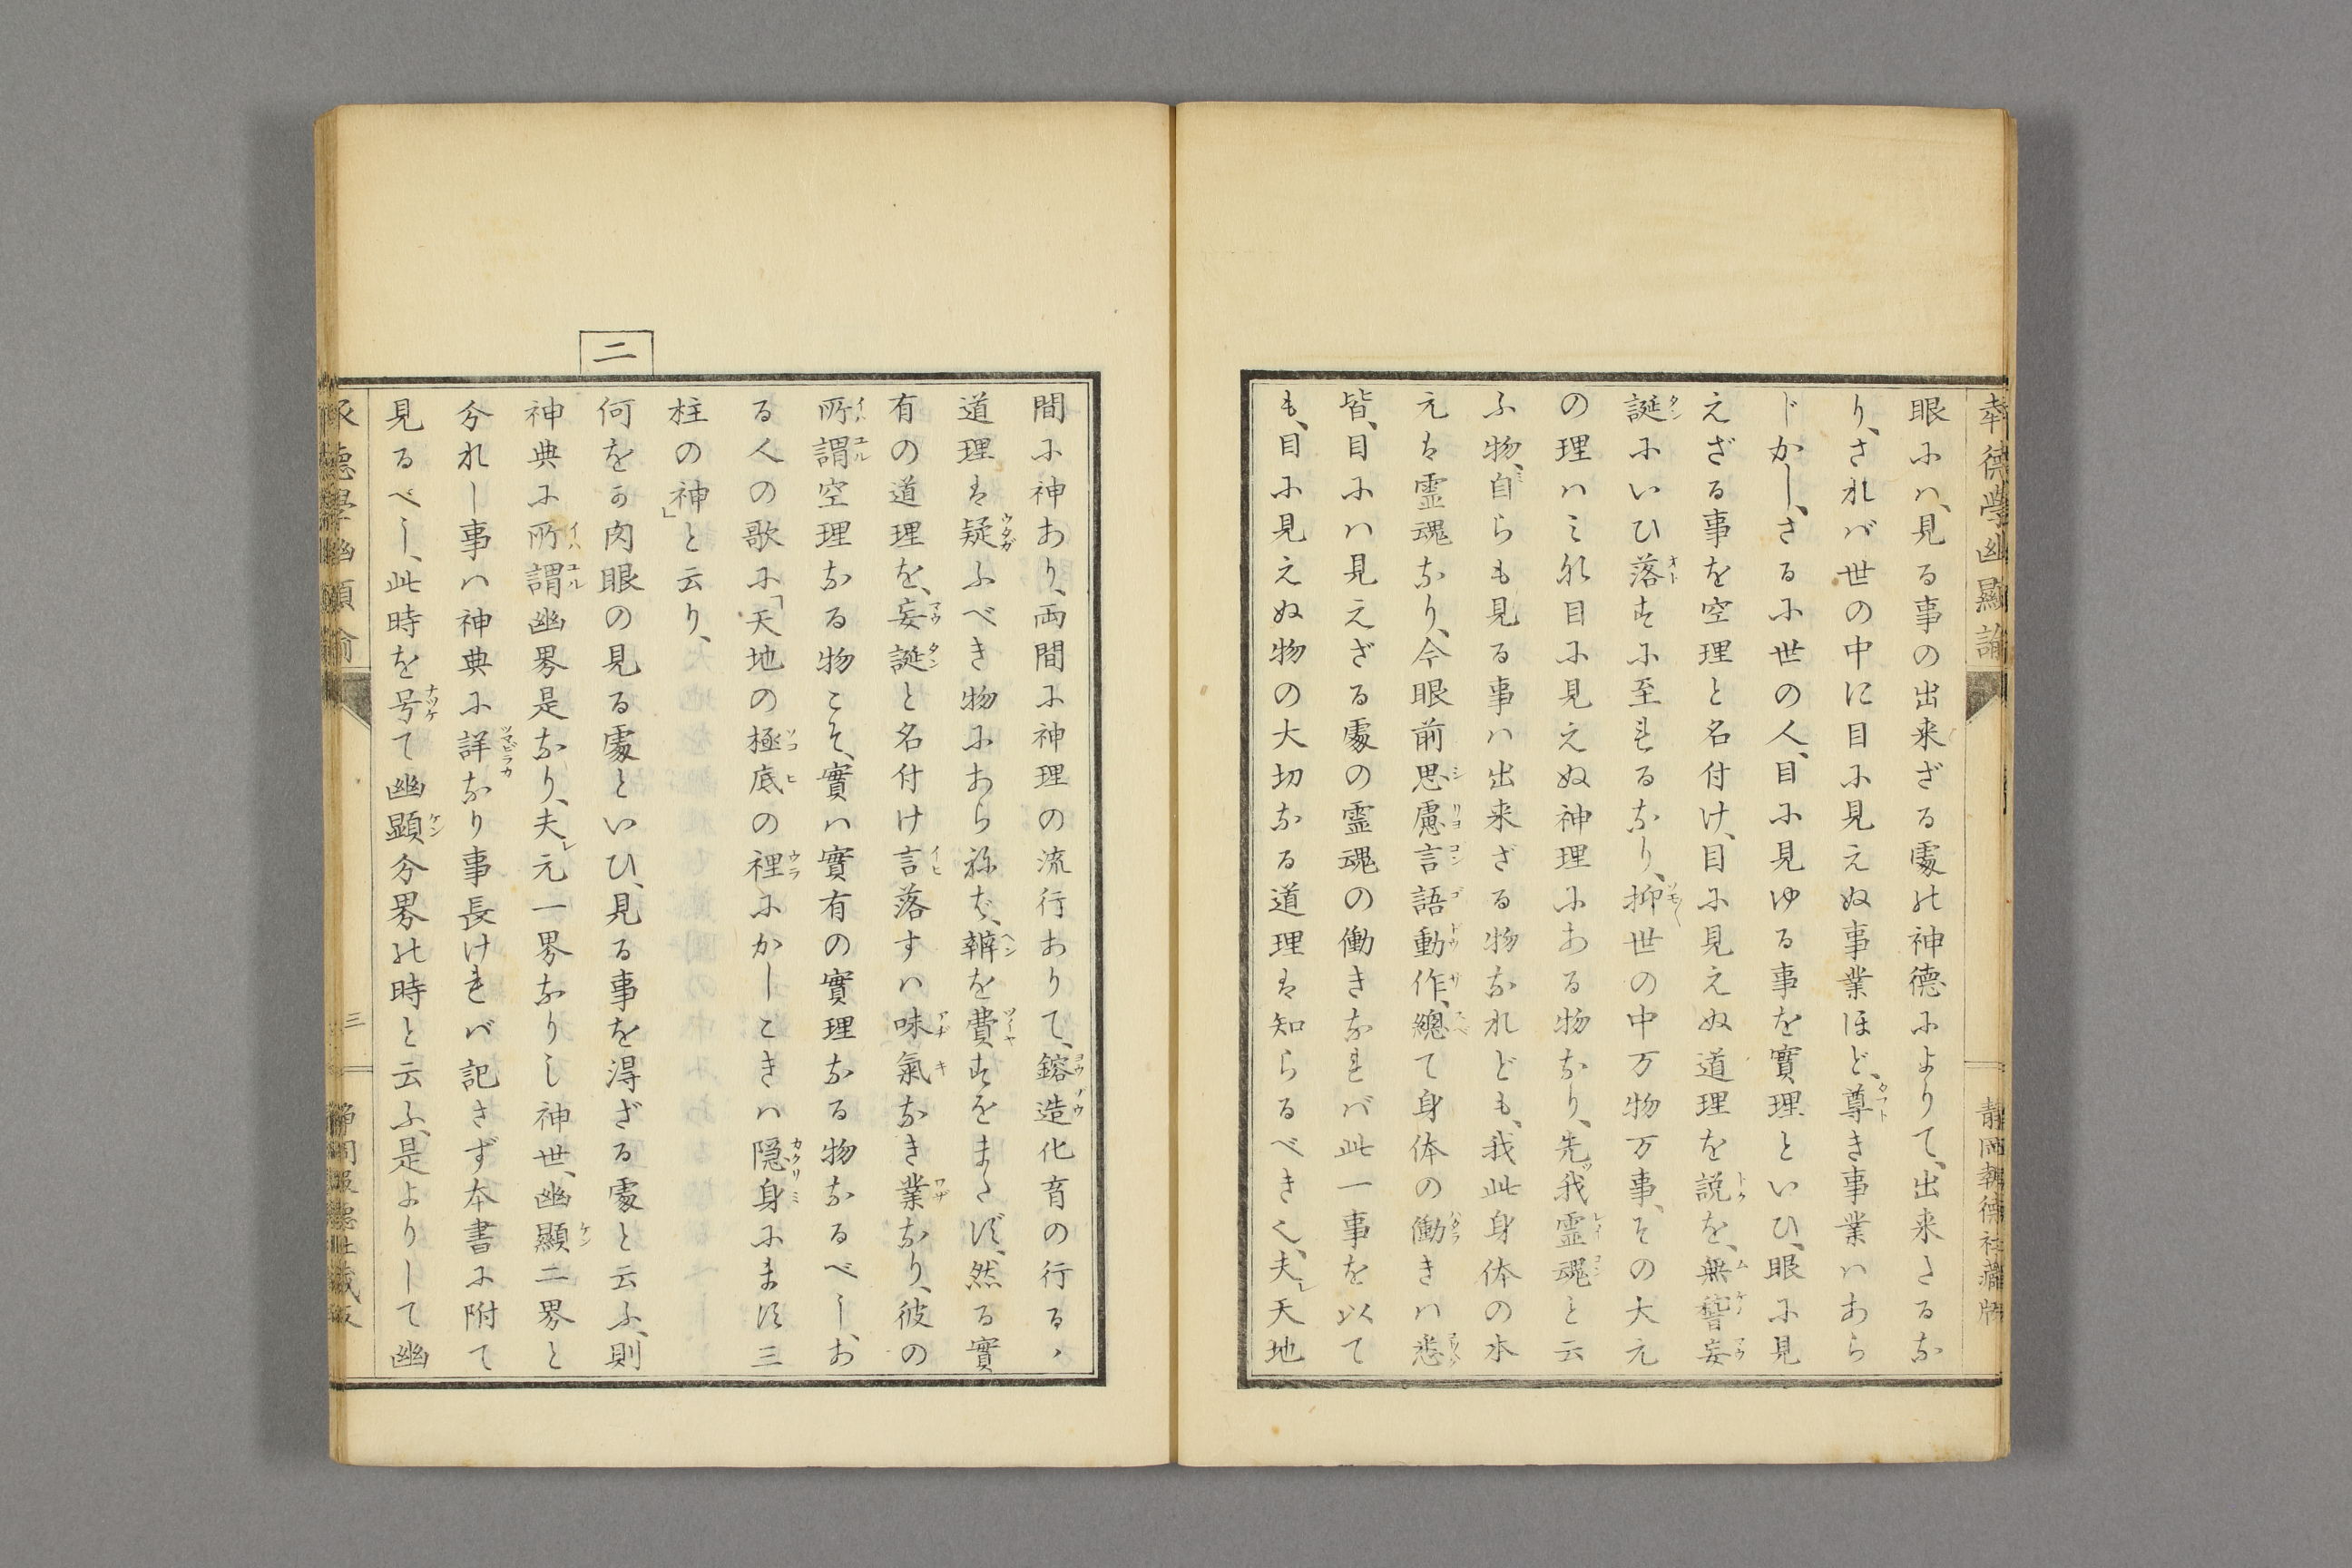 眼にハ、見る事の出来ざる處の神德によりて、出来たるな
り、されバ世の中に目に見えぬ事業ほど、尊き事業ハあら
じかし、さるに世の人、目に見ゆる事を實理といひ、眼に見
えざる事を空理と名付け、目に見えぬ道理を説を、無稽妄
誕にいひ落すに至れるなり、抑世の中万物万事、その大元
の理ハミな目に見えぬ神理にある物なり、先我霊魂と云
ふ物、自らも見る事ハ出来ざる物なれども、我此身体の本
元は霊魂なり、今眼前思慮言語動作、總て身体の働きハ悉
皆、目にハ見えざる處の霊魂の働きなれバ此一事を以て
も、目に見えぬ物の大切なる道理は知らるべき也、夫レ天地
間に神あり、両間に神理の流行ありて、鎔造化育の行るゝ
道理は疑ふべき物にあらねば、辯を費すをまたず、然る實
有の道理を、妄誕と名付け言落すハ味氣なき業なり、彼の
所謂空理なる物こそ、實ハ實有の實理なる物なるべし、お
る人の歌に「天地の極底の裡にかしこきハ隠身にます三
柱の神」と云り、
二
何をか肉眼の見る處といひ、見る事を得ざる處と云ふ、則
神典に所謂幽界是なり、夫レ元一界なりし神世、幽顯二界と
分れし事ハ神典に詳なり事長けれバ記さず本書に附て
見るべし、此時を号て幽顕分界の時と云ふ、是よりして幽
三